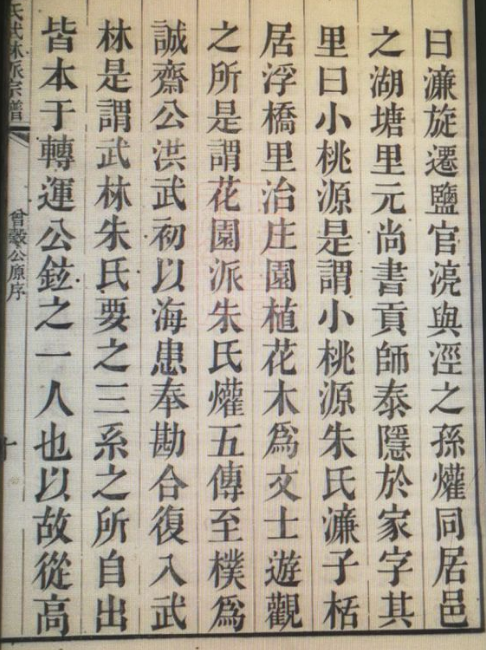 曰濂旋遷鹽官濸與涇之孫爟同居邑
之湖塘里元尚書貢師泰隱於家字其
里曰小桃源是謂小桃源朱氏濂子栝
居浮橋里治庄園植花木為文士遊觀
之所是謂花園派朱氏爟五傳至樸為
誠齋公洪武初以海患奉勘合復入武
林是謂武林朱氏要之三系之所自出
皆本于轉運公鉉之一人也以故從高
氏武林派宗譜
曾
公原序
十